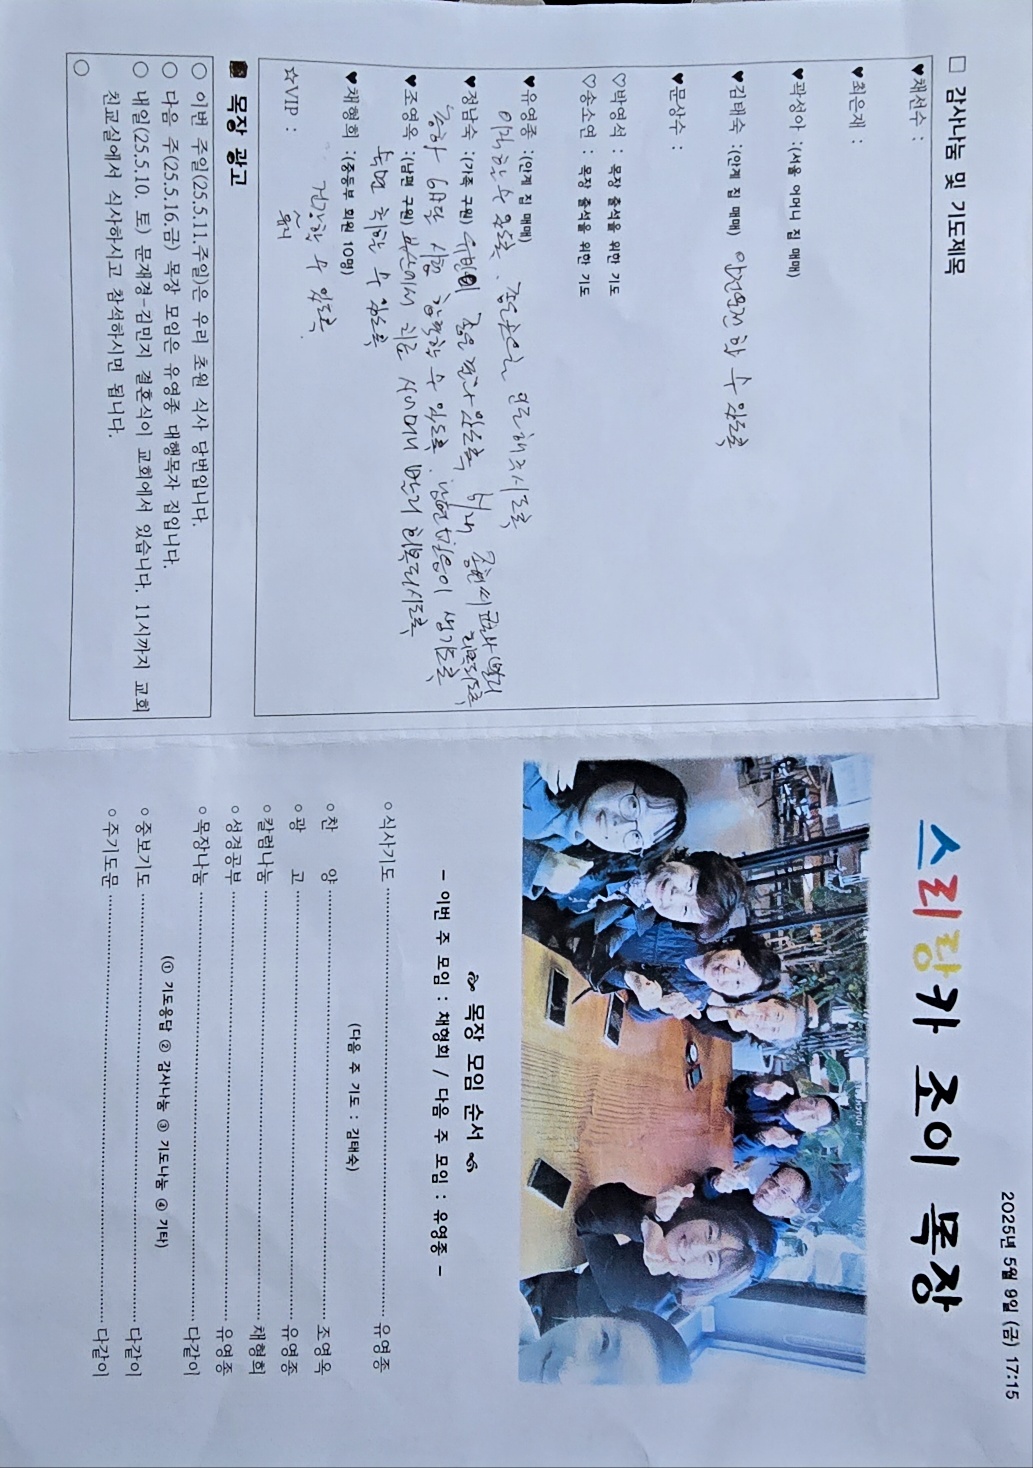 □ 감사나눔 및 기도제목
♥채선수 :
♥최은재 :
♥곽성아 :(서울 어머니 집 매매)
♥김태숙 :(안계 집 매매) 안전운전 할 수 있도록
♥문상수 :
♡박영석 : 목장 출석을 위한 기도
♡송소연 : 목장 출석을 위한 기도
♥유영종 :(안계 집 매매)
수 있도록. 인도해주시도록
♥정남숙 :(가족 구원) 좋은 결과 있도록
6월달 시험 합격할 수 있도록. 믿음이 생기도록
♥조영옥 :(남편 구원) 부산에서 치료 빨리 회복되시도록
숙면 취할 수 있도록
♥채형희 :(중등부 회원 10명)
건강할 수 있도록.
☆VIP :
목장 광고
○ 이번 주일(25.5.11.주일)은 우리 초원 식사 당번입니다.
○ 다음 주(25.5.16.금) 목장 모임은 유영종 대행목자 집입니다.
○ 내일(25.5.10. 토) 문재경-김민지 결혼식이 교회에서 있습니다. 11시까지 교회
친교실에서 식사하시고 참석하시면 됩니다.
○
2025년 5월 9일 (금) 17:15
스리랑카 조이 목장
목장 모임 순서
- 이번 주 모임 : 채형희 / 다음 주 모임 : 유영종 -
○식사기도 유영종
(다음 주 기도 : 김태숙)
○찬 양 조영옥
○광 고 유영종
○칼럼나눔 채형희
○성경공부 유영종
○목장나눔 다같이
(① 기도응답 ② 감사나눔 ③ 기도나눔 ④ 기타)
○중보기도 다같이
○주기도문 다같이